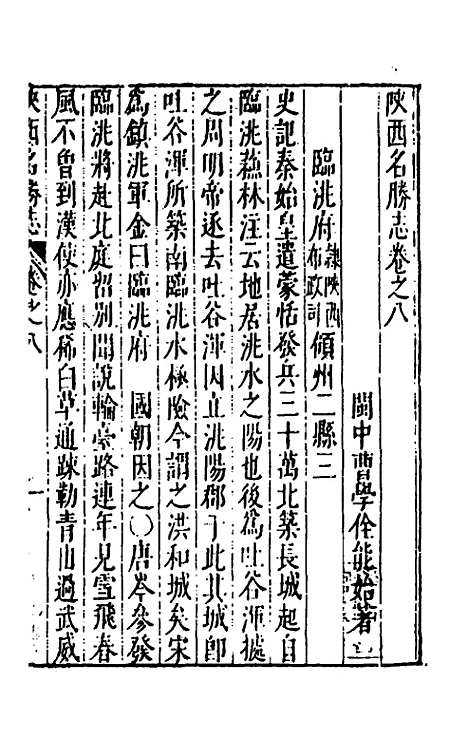 陝西名勝志卷之八
閩中曹學佺能始著
臨洮府隸陝西布政司領州二縣三
史記秦始皇遣蒙恬發兵三十萬北築長城起自
臨洮蘓林注云地居洮水之陽也後為吐谷渾據
之周明帝逐去吐谷渾因立洮陽郡于此其城即
吐谷渾所築南臨洮水極險今謂之洪和城矣宋
為鎮洮軍金曰臨洮府　國朝因之〇唐岑參發
臨洮將赴北庭留別聞說輪臺路連年見雪飛春
風不曾到漢使亦應稀白草通疎勒青山過武威
陝西名勝志　卷之八　一